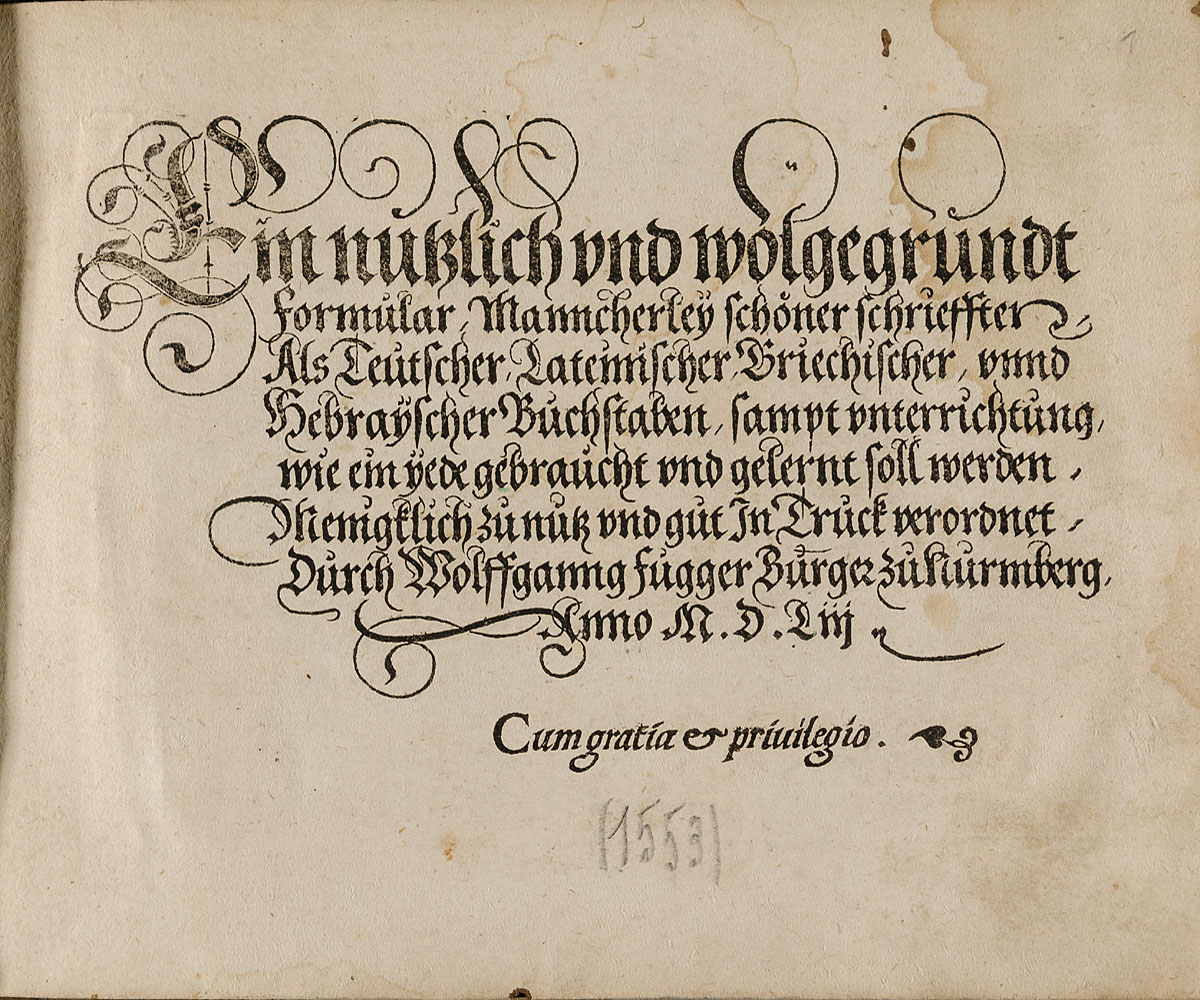 1
Ein nutzlich vnd wolgegrundt
Formular, Manncherley schöner schriefften,
Als Teutscher, Lateinischer, Griechischer, vnnd
Hebrayscher Buchstaben, sampt vnterrichtung,
wie ein yede gebraucht vnd gelernt soll werden,
Menigklich zu nutz vnd gut In Truck verordnet,
Durch Wolffganng Fugger Burger zu Nurmberg,
Anno M. D. Liij.
Cum gratia & priuilegio.
(1553)